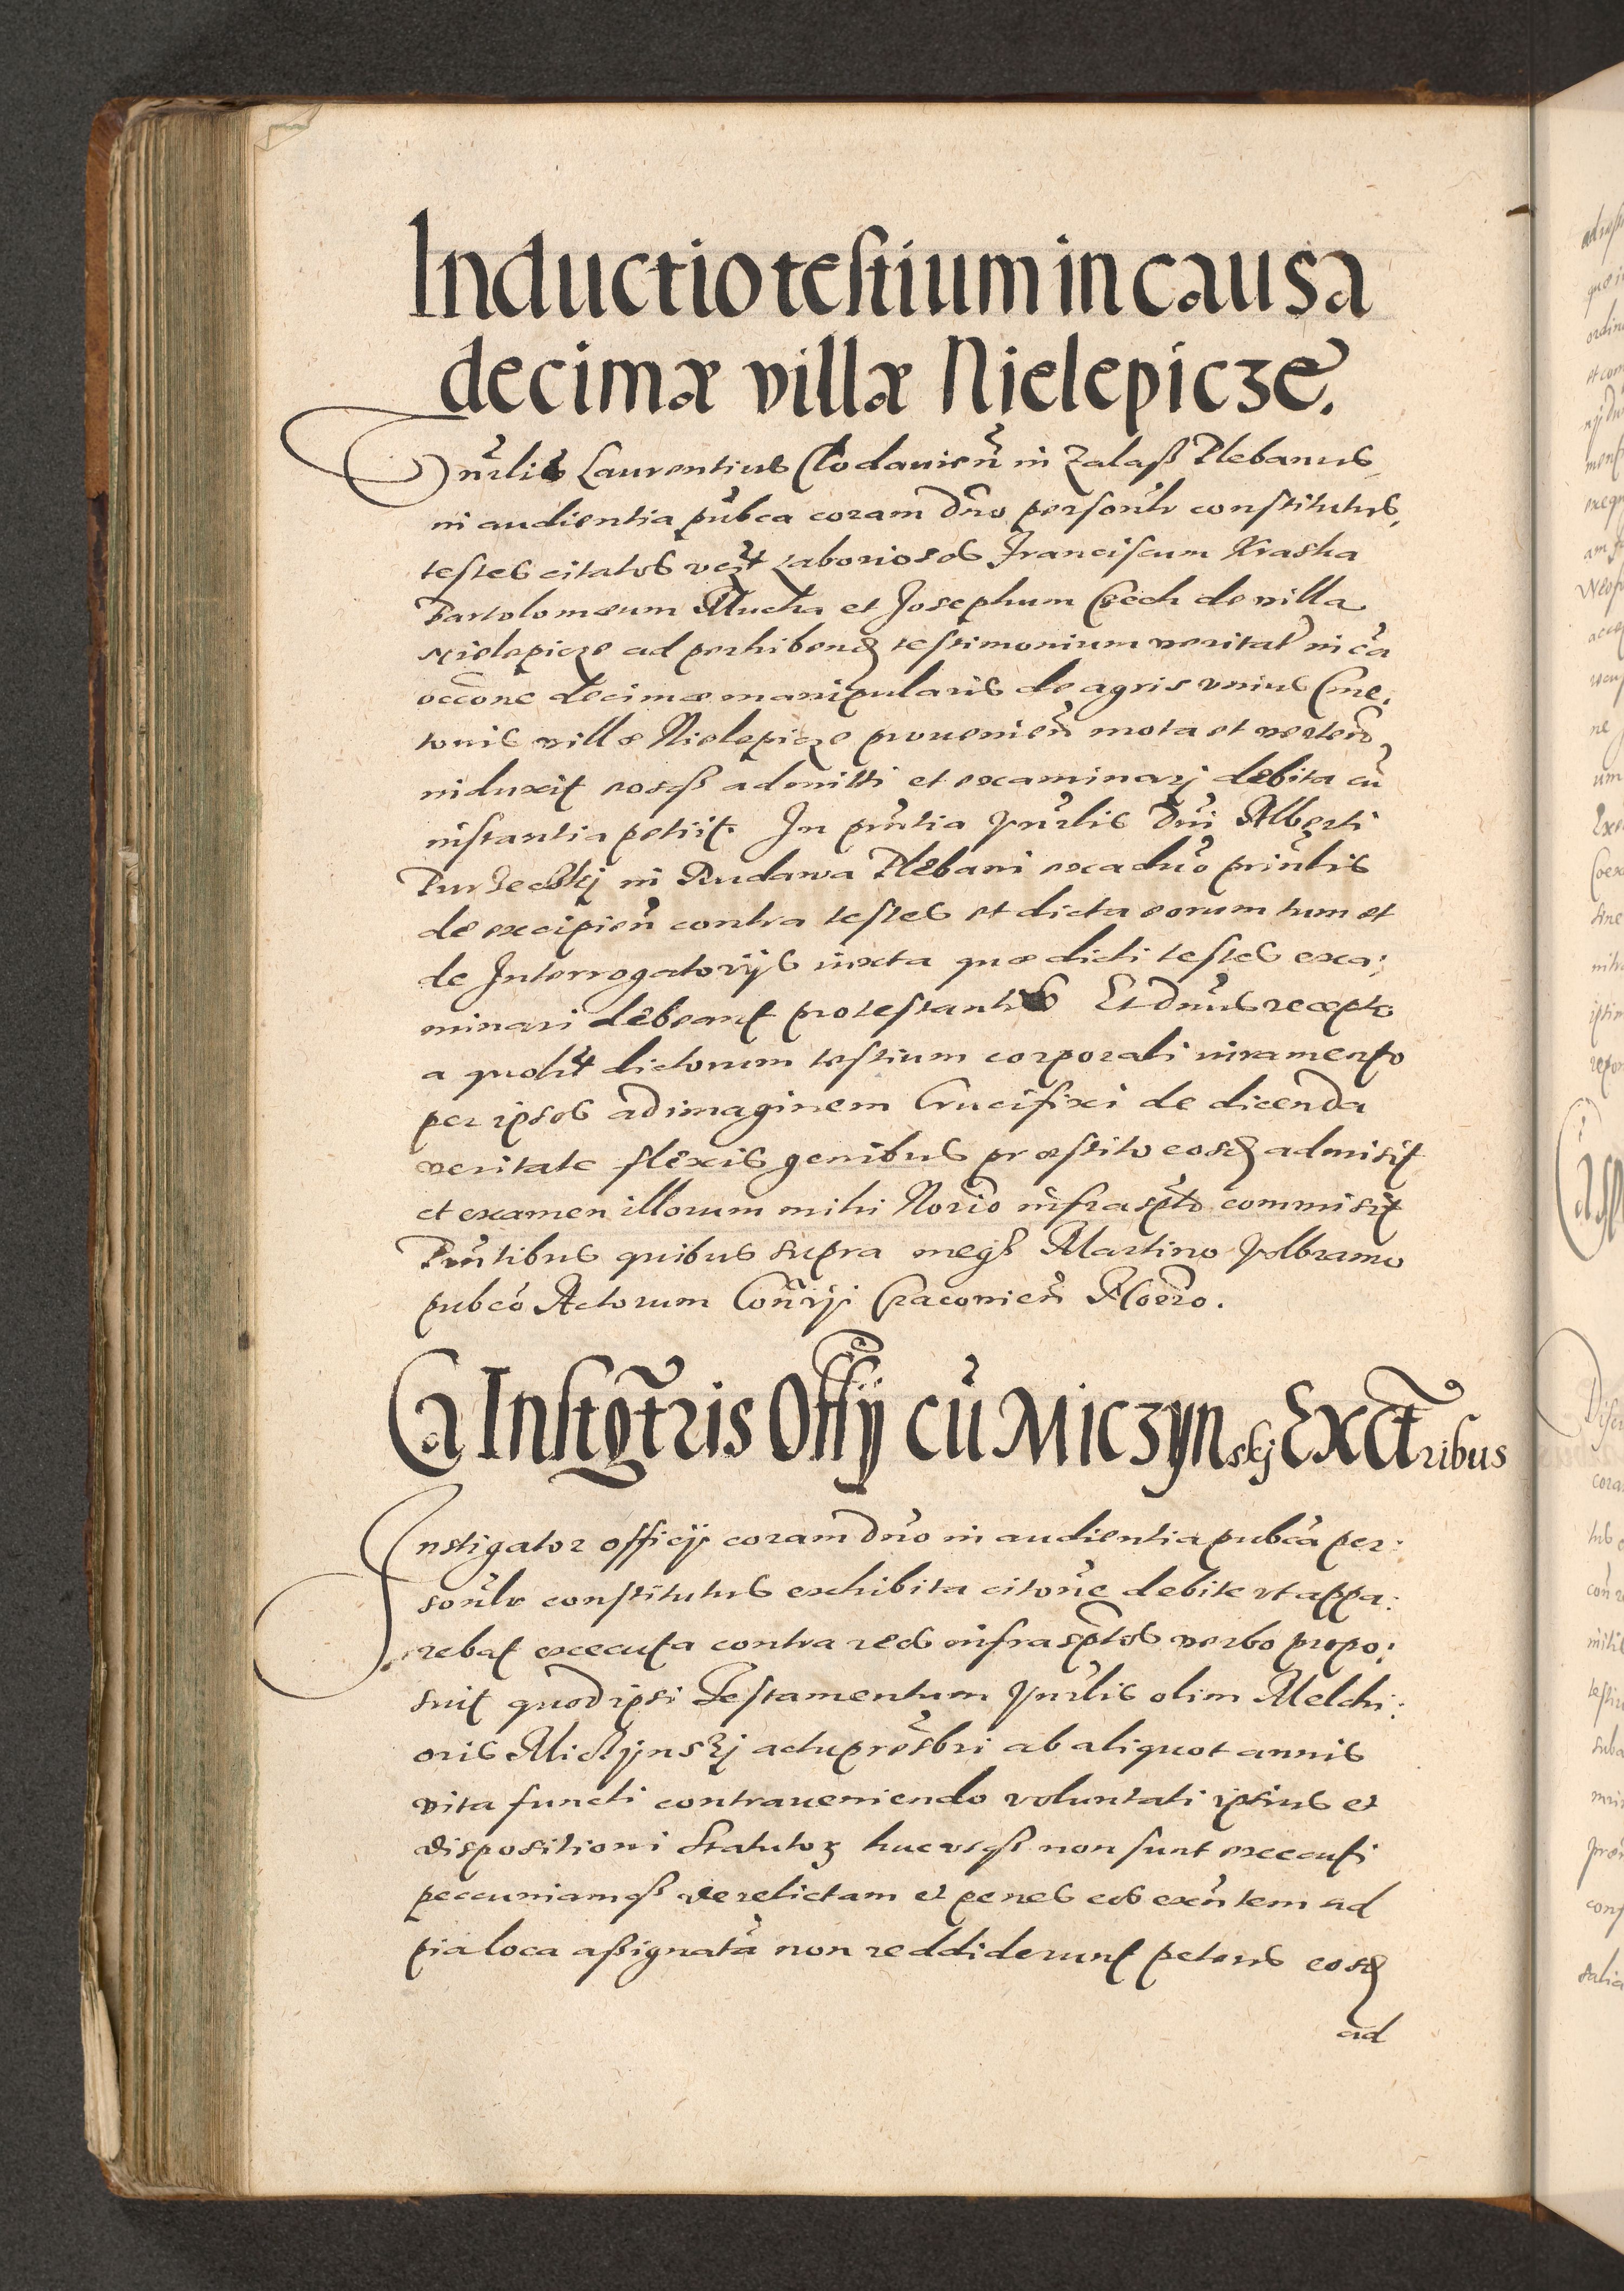 Inductio testium in causa
decimæ villæ Nielepicze.
Vn̄rlis Laurentius Clodavien̄ in Zalaß Plebanus
in audientia pūbca coram Dn̄o personl̄r constitutus,
testes citatos vcz̄t Laboriosos Franciscum Kraska
Bartolomæum Mucha et Josephum Czech de villa
Nielepicze ad perhibend testimonium veritat̄ in cā
occōne decimæ manipularis de agris unius Cme:
tonis villæ Nielepicze provenien̄ mota et verten̄
induxit eosq̃ admitti et examinarj debita cū
instantia petiit. In pn̄tia Vn̄rlis Dn̄i Alberti
in Rudawa Plebani ex aduō prin̄lis
de excipien̄ contra testes et dicta eorum tum et
de Interrogatorijs iuxta quæ dicti testes exa:
minari debeant protestantis Et Dn̄us recepto
a quol̄t dictorum testium corporali iuramento
per ipsos ad imaginem Crucifixi de dicenda
veritate flexis genibus præstito eosd admisit
et examen illorum mihi Norīo infrasp̄to commisit
Pn̄tibus quibus supra meq̃ Martino Volbramo
pubcō Actorum Con̄rij Cracovien̄ Noēro.
Cā Instgt̄ris Offij cū Miczynskj Exct̄ribus
Instigator officij coram Dn̄o in audientia pubcā per:
sonl̄r constitutus exhibita citōne debite ut appa:
rebat executa contra reos infrasp̄tos verbo propo:
suit quod ipsi Testamentum Vn̄rlis olim Melchi:
oris Miczynskj actu prēsbri ab aliquot annis
vita functi contraveniendo voluntati ipsius et
dispositioni Statutoꝝ hucusq̃ non sunt executi
peccuniamq̃ derelictam et penes eos exn̄tem ad
pia loca aßignatā non reddiderunt petens eosd
ad